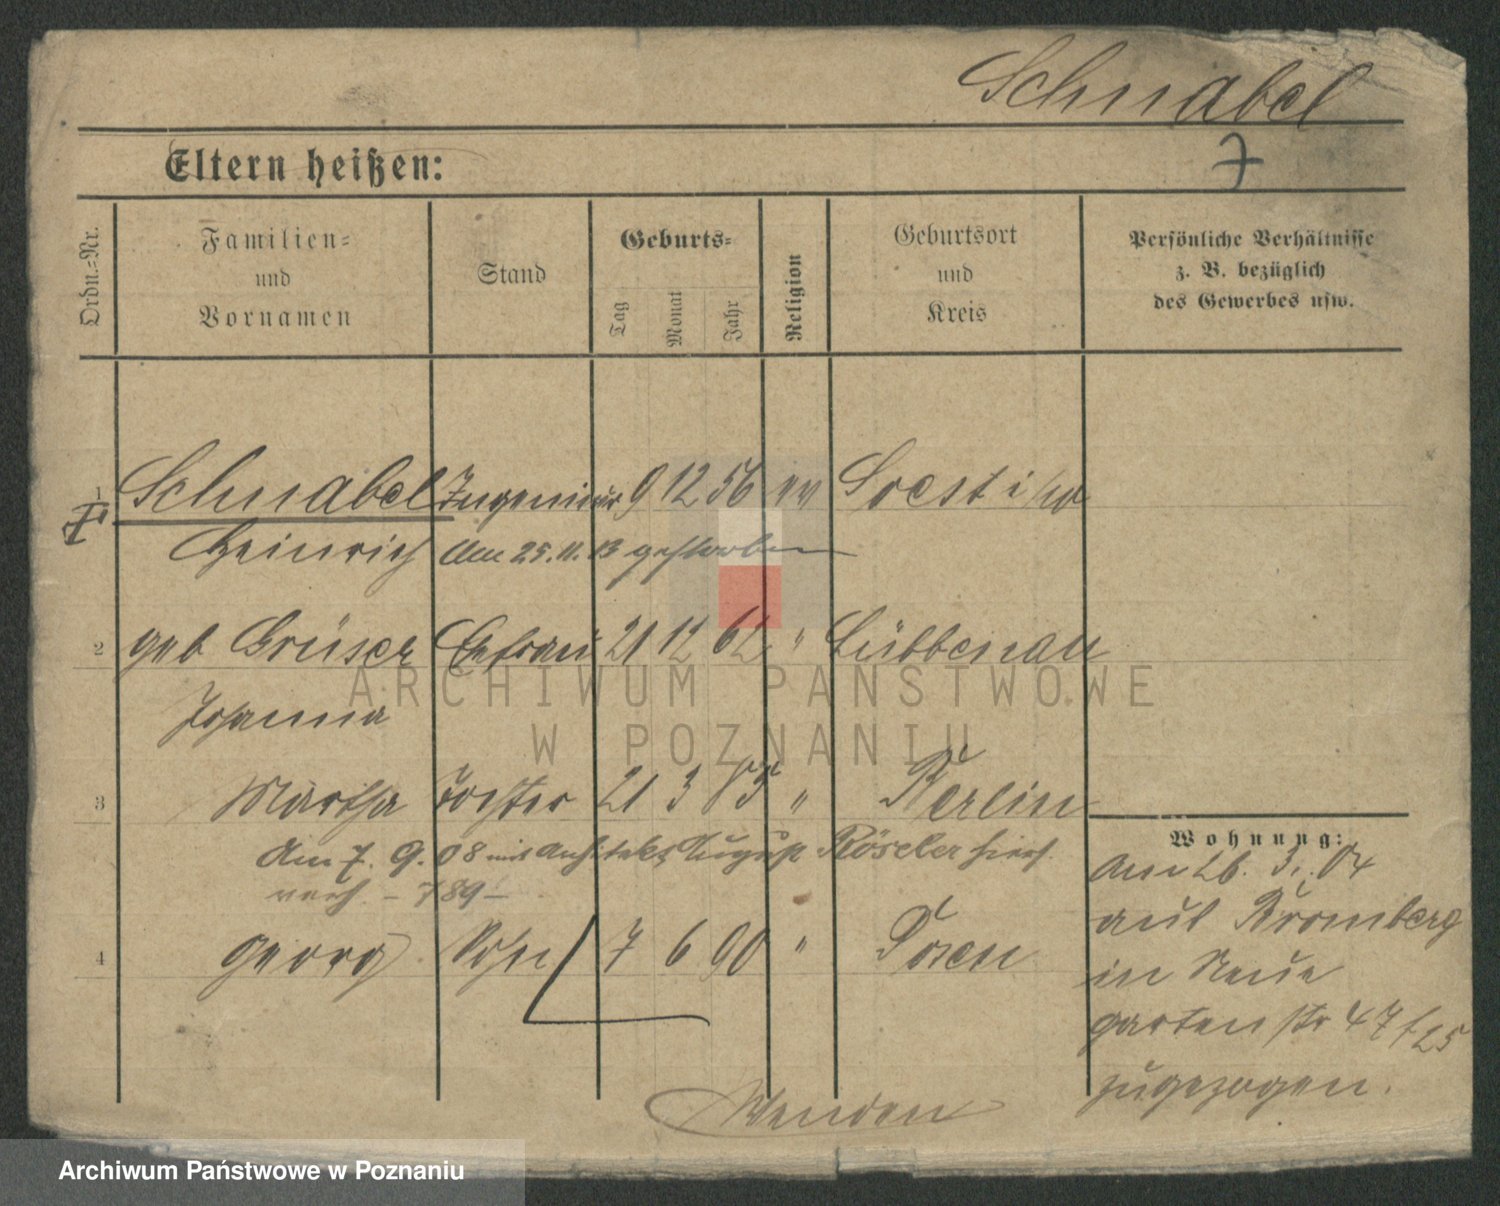 Schnabel
7
Eltern heißen:
Ordn.-Nr.
Familien-
und
Vornamen
Stand
Geburts-
Tag
Monat
Jahr
Religion
Geburtsort
und
Kreis
Persönliche Verhältnisse
z. B. bezüglich
des Gewerbes usw.
1 Schnabel Ingenieur 9 12 56 ev Soest i/W
Heinrich Am 25.11.13 gestorben
2 geb Grüser Ehefrau 21 12 62 " Lübbenau
Johanna
3 Martha Tochter 21 3 85 " Berlin
Am 7. 9. 08 mit Architekt August Röseler hier
verh. – 789 –
4 Georg Sohn 7 6 90 " Posen
Wohnung:
Am 26. 3. 04
aus Bromberg
in Neue
Gartenstr 47 f 25
zugezogen.
Wenden
ARCHIWUM PAŃSTWOWE
W POZNANIU
Archiwum Państwowe w Poznaniu